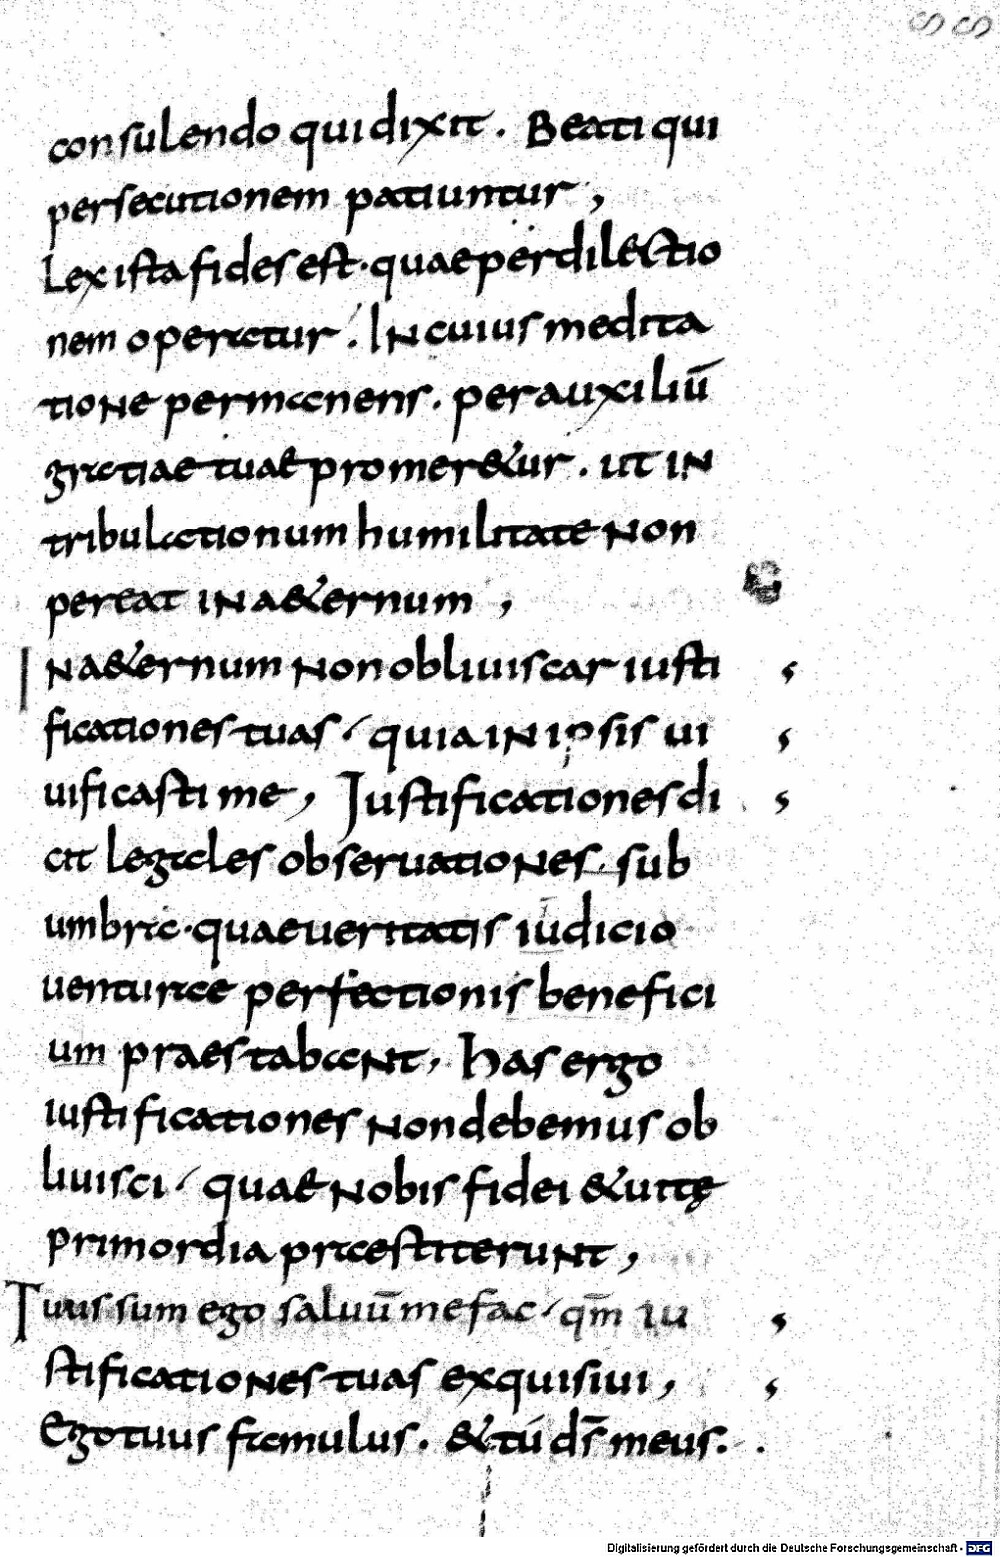 consulendo qui dixit. Beati qui
persecutionem patiuntur,
Lex ista fides est. quae per dilectio
nem operatur. In cuius medita
tione permanens. per auxiliū
gratiae tuae promer&ur. ut in
tribulationum humilitate non
pereat in a&ernum,
In a&ernum non obliuiscar iusti
ficationes tuas, quia in ipsis ui
uificasti me, Iustificationes di
cit legales obseruationes. sub
umbra. quae ueritatis iudicio
uenturae perfectionis benefici
um praestabant, has ergo
iustificationes non debemus ob
liuisci, quae nobis fidei & uitę
primordia praestiterunt,
Tuus sum ego saluū me fac, qm̄ iu
stificationes tuas exquisiui,
Ego tuus famulus. & tú ds̄ meus.
Digitalisierung gefördert durch die Deutsche Forschungsgemeinschaft - DFG